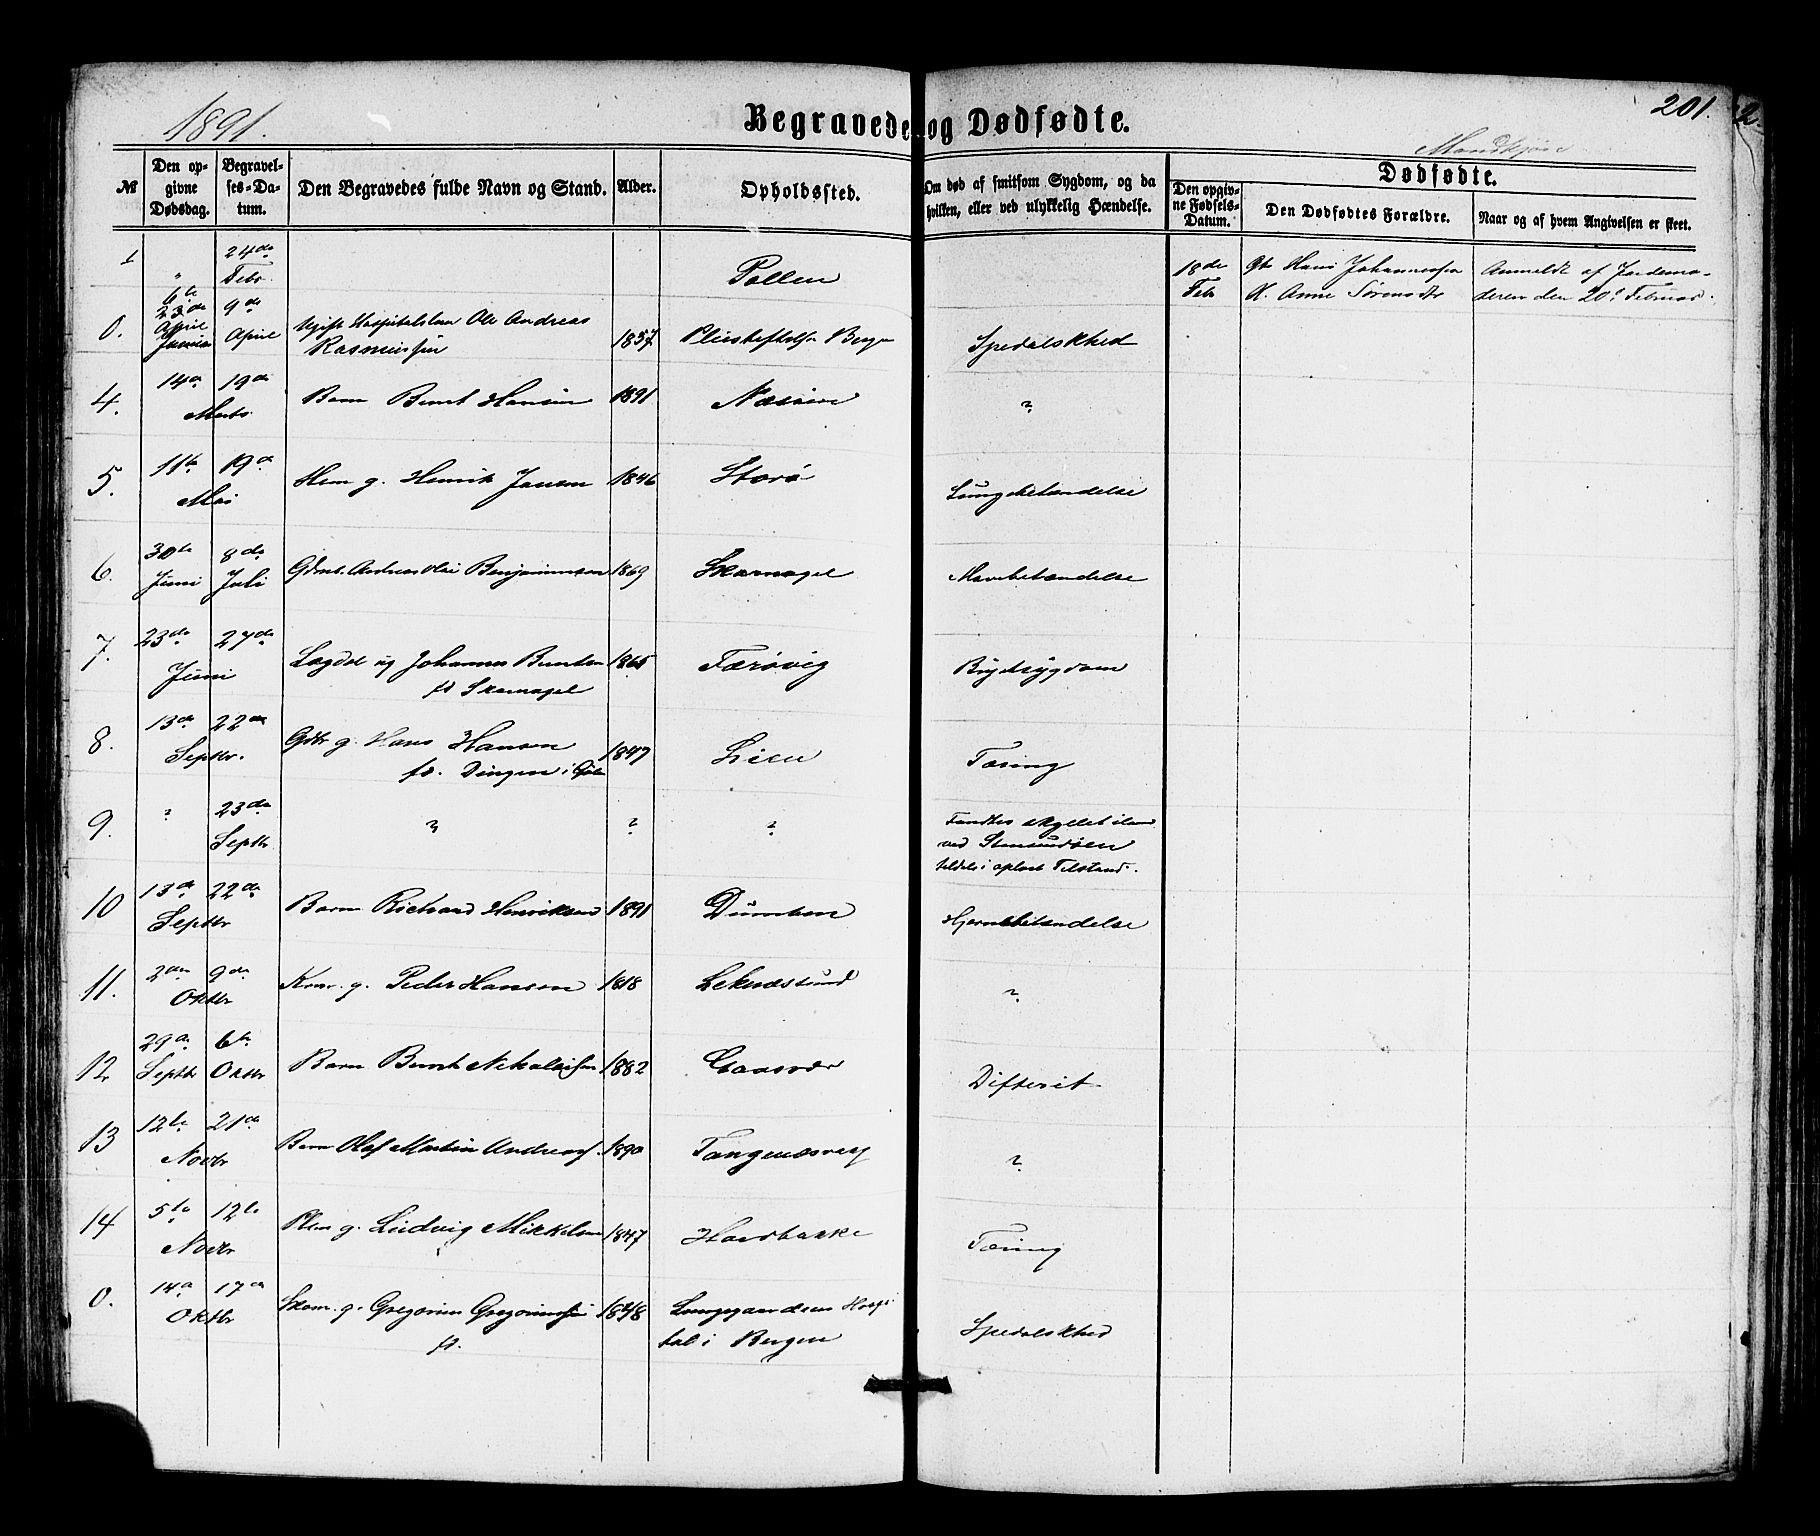 1891.
Begravede og Dødfødte.
201.
Mandkjøn
№
Den opgivne Dødsdag.
Begravelses-Datum.
Den Begravedes fulde Navn og Stand.
Alder.
Opholdssted.
Om død af smitsom Sygdom, og da hvilken, eller ved ulykkelig Hændelse.
Dødfødte.
Den opgivne Fødsels-Datum.
Den Dødfødtes Forældre.
Naar og af hvem Angivelsen er skeet.
1 " 24de Febr. Pollen 18de Febr Gbr Hans Johannessen Anmeldt af Jordemo-
H. Anne Sørensdtr deren den 20d Februar.
0. April 9de April Ugift Hospitalslem Ole Andreas
Rasmussen 1857 Pleiestiftelsen Bergen Spedalskhed
4. 14de 19de Marts Barn Bernt Hansen 1891 ?
5. 11te 19de Mai g. Henrik Jansen 1846 Storø Lungebetændelse
6. 30te Juni 8de Juli Gdms. Andreas Olai Benjaminsen 1869 Skarnagel Mavebetændelse
7. 23de 27de Juni Lægdsl ug Johannes Berntsen 1865 Færøvig Brystsygdom
fd Skarnagel
8. 13de 22de Septbr. Gdbr g. Hans Hansen 1847 Lien Tæring
fd. Dingen i
9. ? 23de Septbr ? ? ? Fandtes skyllet iland
ved Stensundøen
tildels i opløst Tilstand.
10 13de 22de Septbr Barn Richard Henriksen 1891 Dumben Hjernebetændelse
11. 2den 9de Oktbr g. Peder Hansen 1818 Leknæssund ?
12. 29de Septbr 6te Oktbr Barn Bernt Nikolaisen 1882 Gaasvær Difterit
13 12te 21de Novbr Barn Olaf Martin Andreas. 1890 Tangenæsvaag ?
14 5te 12te Novbr g. Ludvig Mikkelsen 1847 Hardbakke Tæring
0. 14de 17de Oktbr g. Gregorius Gregoriussen 1848 Lungegaardens Hospi-
fd. tal i Bergen Spedalskhed